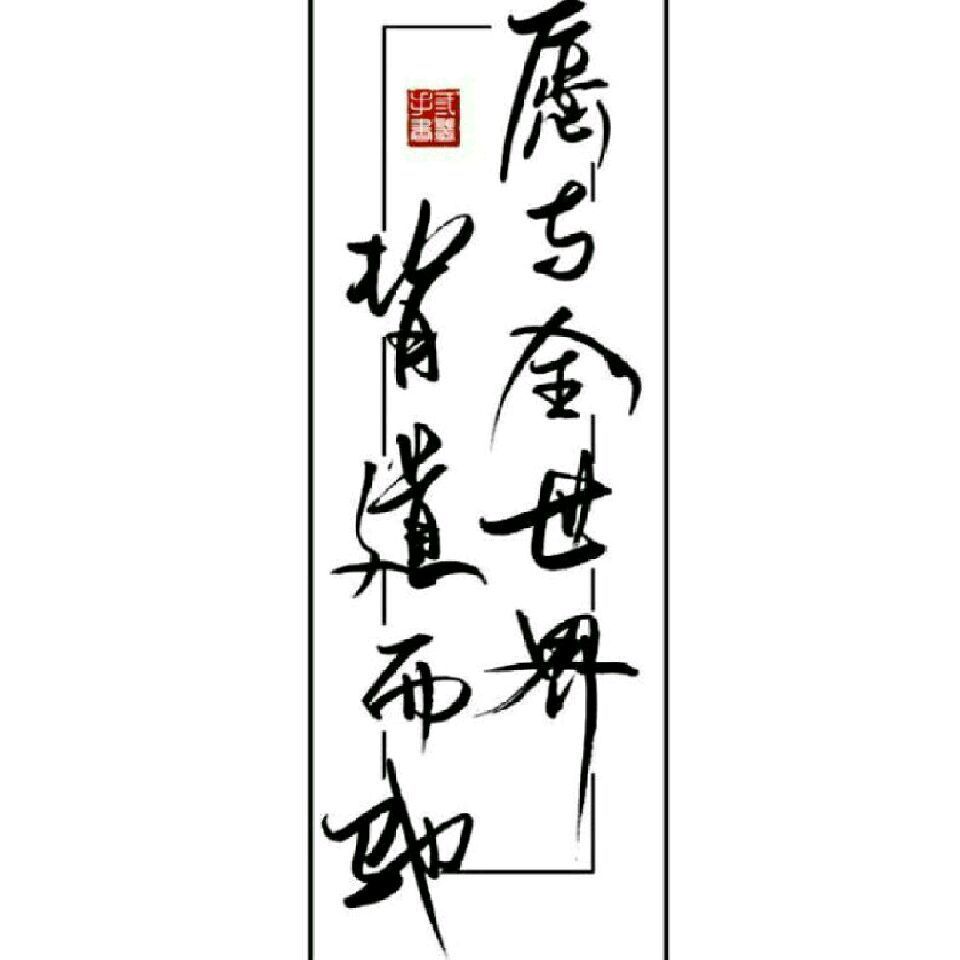 愿与全世界
背道而驰